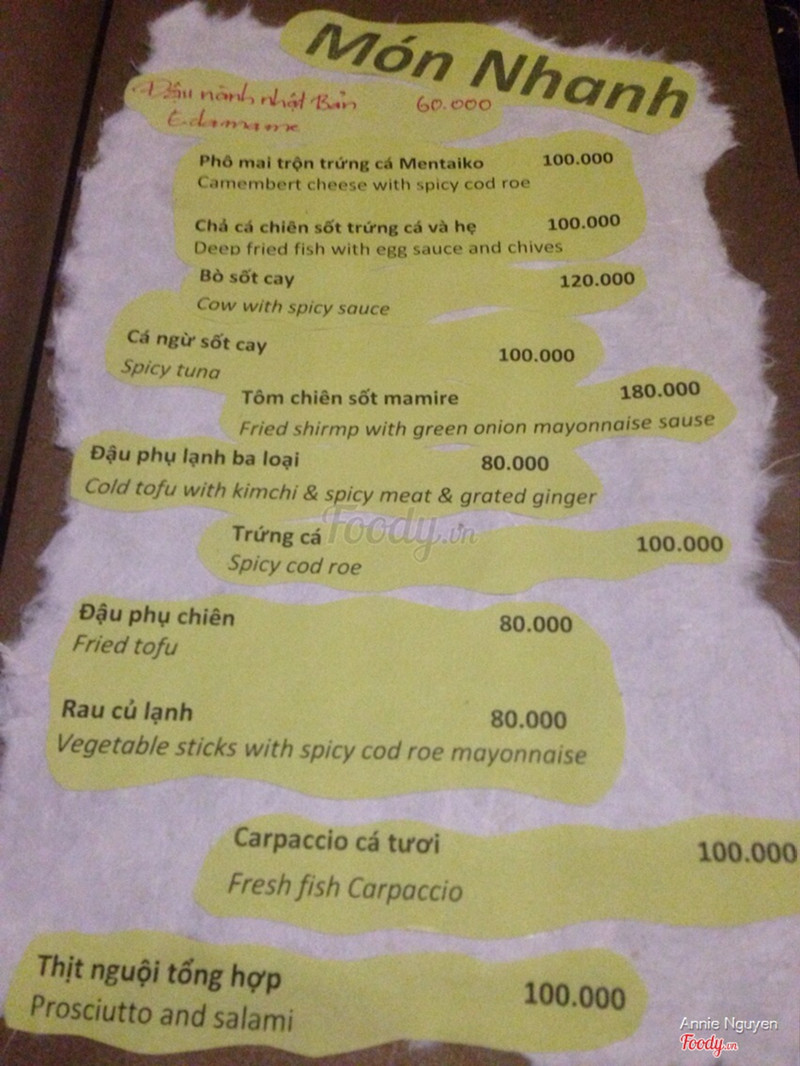 Món Nhanh
Đậu nành nhật Bản 60.000
Edamame
Phô mai trộn trứng cá Mentaiko 100.000
Camembert cheese with spicy cod roe
Chả cá chiên sốt trứng cá và hẹ 100.000
Deep fried fish with egg sauce and chives
Bò sốt cay 120.000
Cow with spicy sauce
Cá ngừ sốt cay 100.000
Spicy tuna
Tôm chiên sốt mamire 180.000
Fried shirmp with green onion mayonnaise sause
Đậu phụ lạnh ba loại 80.000
Cold tofu with kimchi & spicy meat & grated ginger
Foody.vn
Trứng cá 100.000
Spicy cod roe
Đậu phụ chiên 80.000
Fried tofu
Rau củ lạnh 80.000
Vegetable sticks with spicy cod roe mayonnaise
Carpaccio cá tươi 100.000
Fresh fish Carpaccio
Thịt nguội tổng hợp 100.000
Prosciutto and salami
Annie Nguyen
Foody.vn